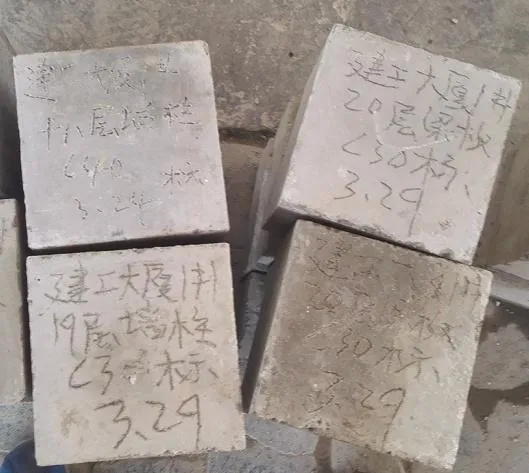 建工大厦1#
十八层墙柱
C40 标
3.29
建工大厦1#
20层梁板
C30标
3.29
建工大厦1#
19层墙柱
C30标
3.29
建工大厦1#
20层梁板
C30标
3.29